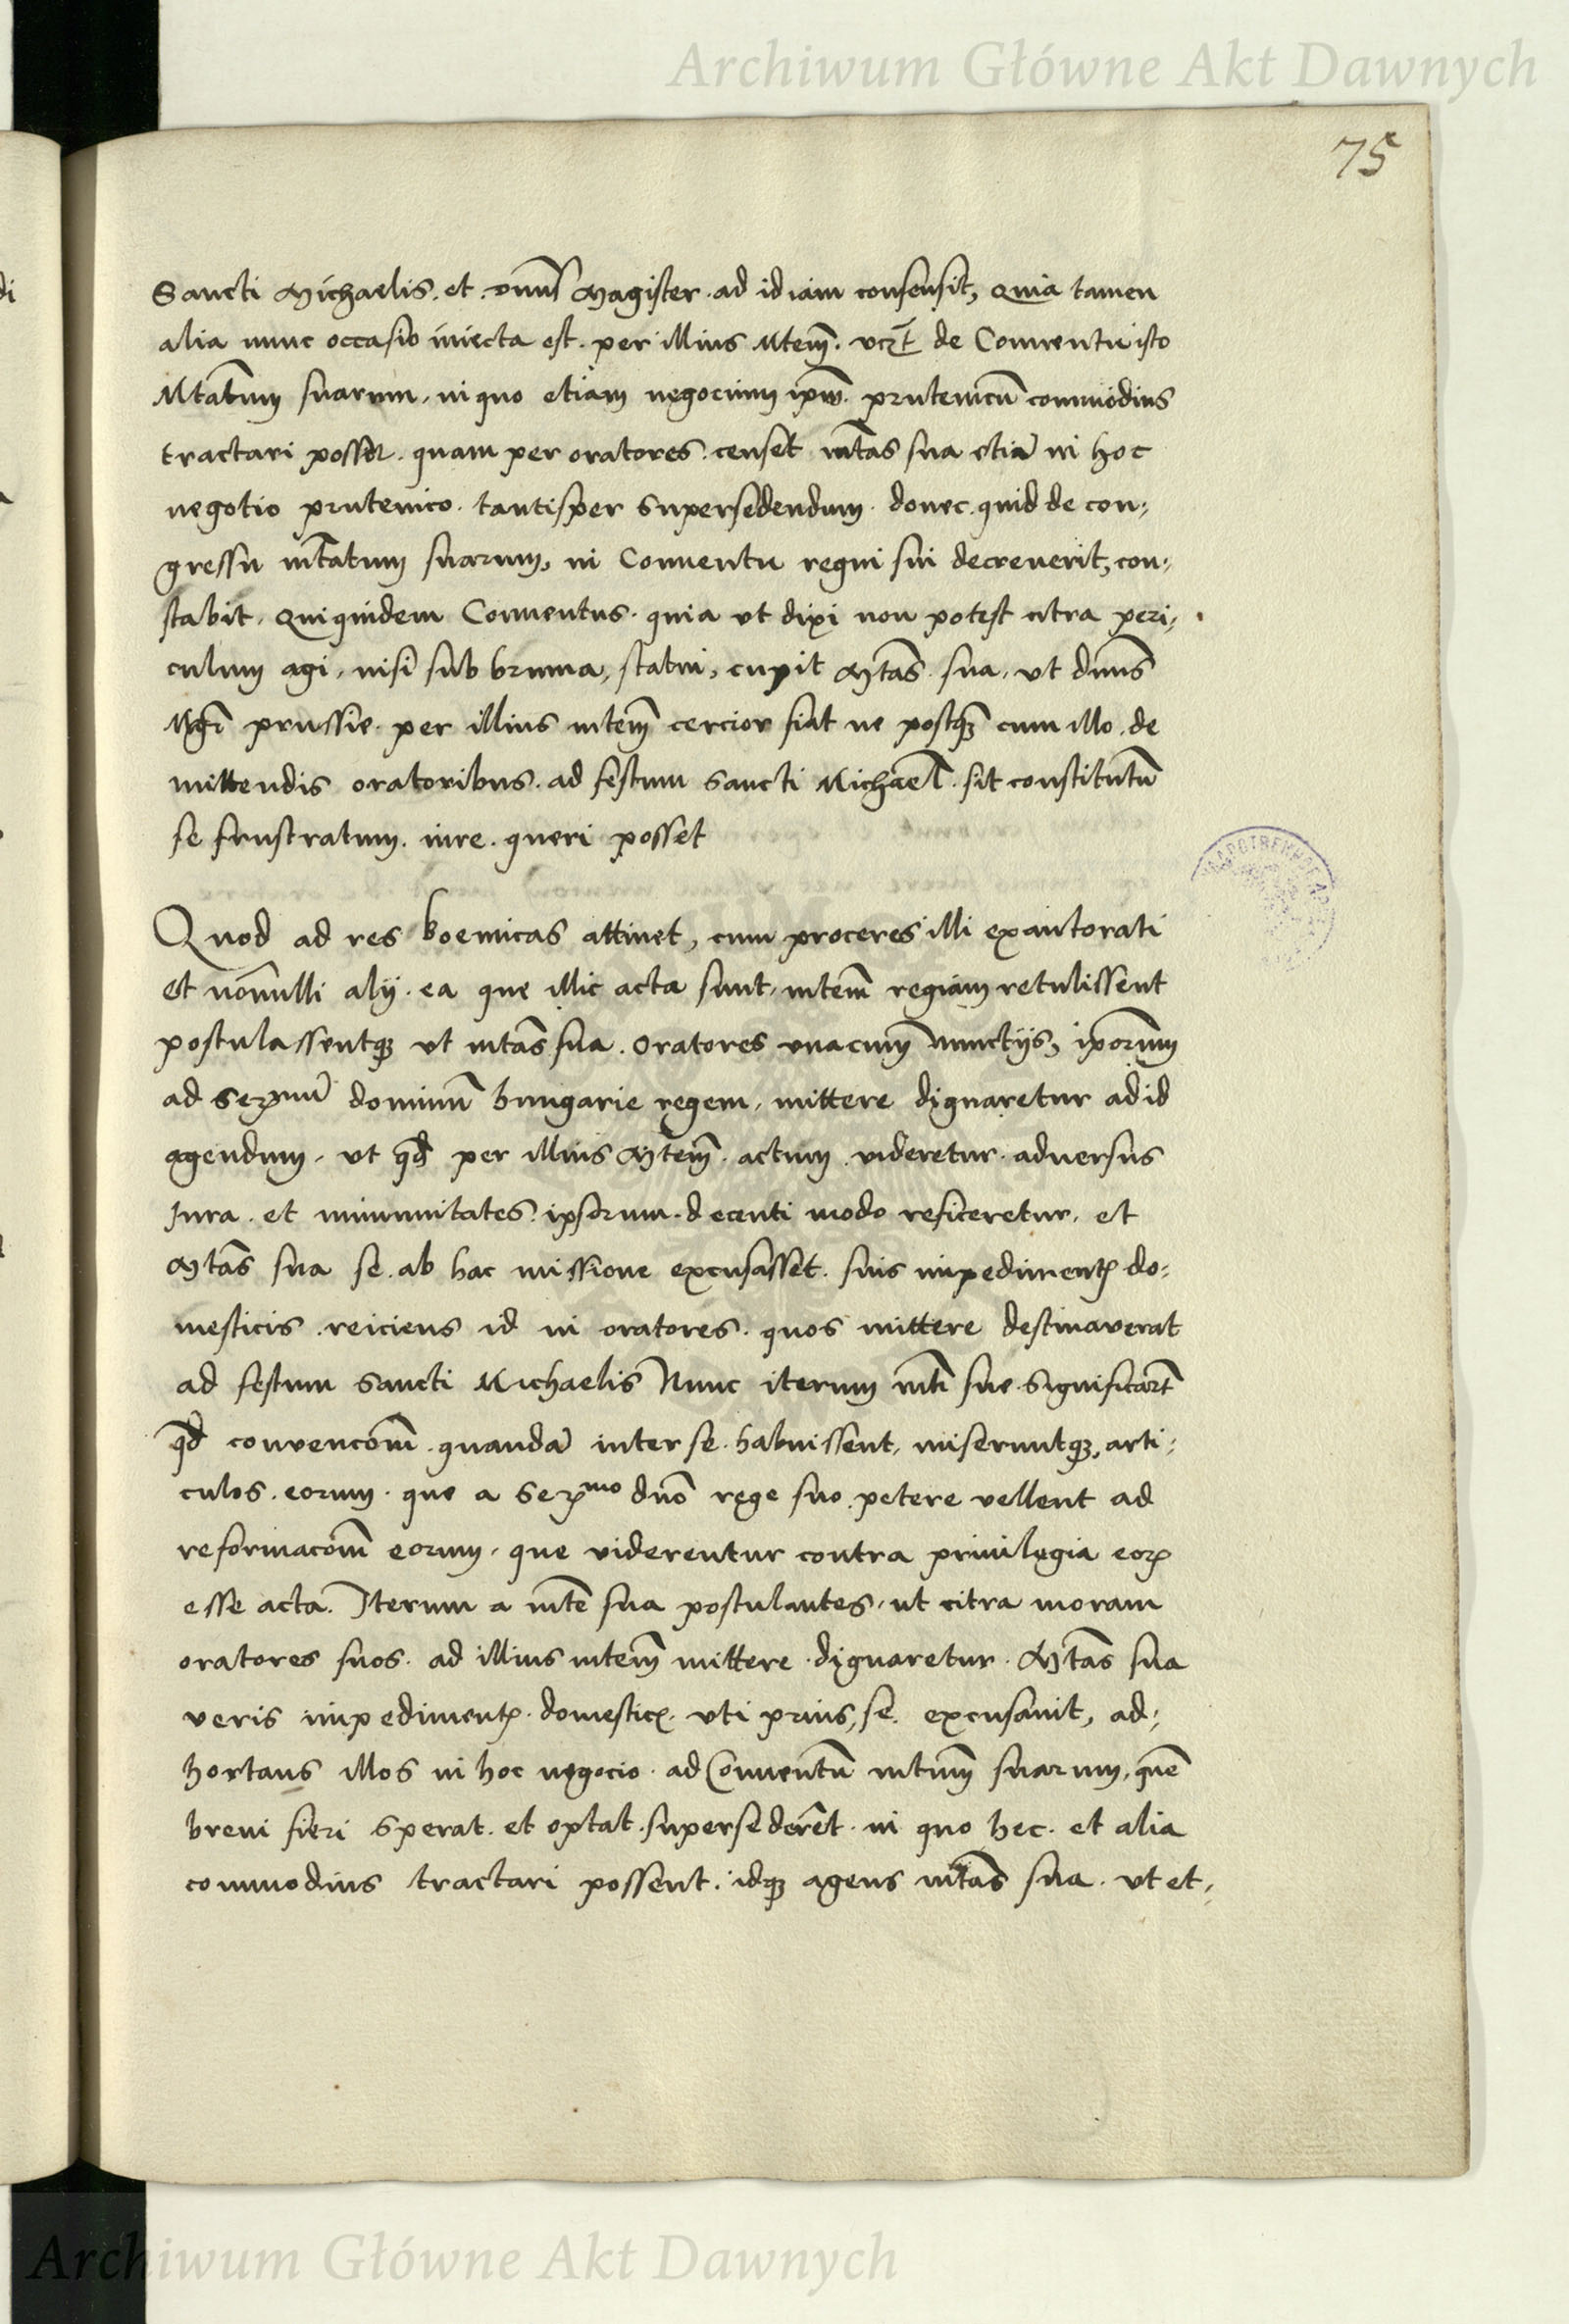 Archiwum Główne Akt Dawnych
75
Sancti Michaelis. et. dnus Magister. ad id iam consensit, Quia tamen
alia nunc occasio iniecta est. per illius Mtem. vcz de Conventu isto
Mtatum suarum, in quo etiam negocium ipm. prutenicu commodius
tractari posset. quam per oratores. censet mtas sua etia in hoc
negotio prutenico. tantisper supersedendum. donec. quid de con:
gressu mtatum suarum, in Conventu regni sui decreverit, con:
stabit. Qui quidem Conventus. quia ut dixi non potest citra peri:
culum agi, nisi sub bruma, statui, cupit Mtas. sua, ut dnus
Mgr prussie. per illius mtem cercior fiat ne postq cum illo. de
mittendis oratoribus. ad festum Sancti Michael. sit constitutu
se frustratum. iure. queri posset
Quod ad res boemicas attinet, cum proceres illi exautorati
et nonulli alij. ea que illic acta sunt, mtem regiam retulissent
postulassentq ut mtas sua. oratores unacum Nunctijs, iporum
ad Sermu dominu hungarie regem, mittere dignaretur ad id
agendum, ut qd per illius Mtem. actum videretur. adversus
Jura. et immunitates. ipsorum. decenti modo reficeretur, et
Mtas sua se. ab hac missione excusasset. suis impediment do:
mesticis. reiciens id in oratores. quos mittere destinaverat
ad festum Sancti Michaelis Nunc iterum mti sue. significart
qd convencom. quanda inter se. habuissent, miseruntq, arti:
culos. eorum. que a Sermo dno rege suo. petere vellent ad
reformacom eorum, que viderentur contra privilegia eor
esse acta. Iterum a mte sua postulantes, ut citra moram
oratores suos. ad illius mtem mittere. dignaretur. Mtas sua
veris impediment. domestic. uti prius, se. excusavit, ad:
hortans illos in hoc negocio. ad Conventu mtum suarum, que
brevi fieri sperat. et optat. supersederet. in quo hec. et alia
commodius tractari possent. idq agens mtas sua. ut et:
Archiwum Główne Akt Dawnych